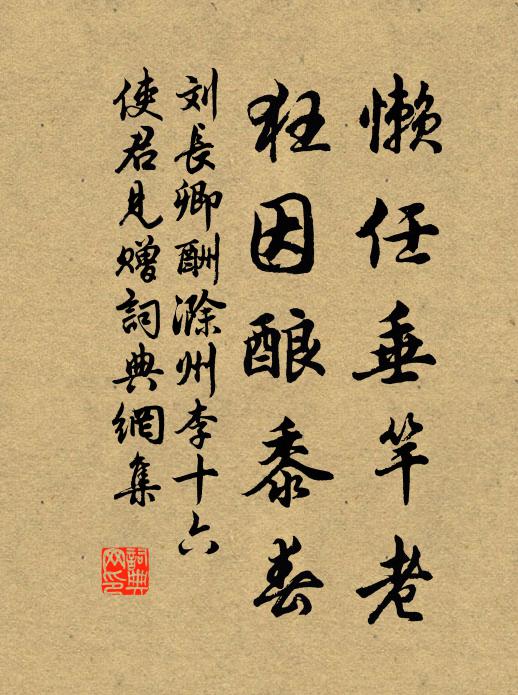 懒任垂竿老
狂因酿黍春
刘長卿酬滁州李十六
使君見赠詞典網集
詞典
网印